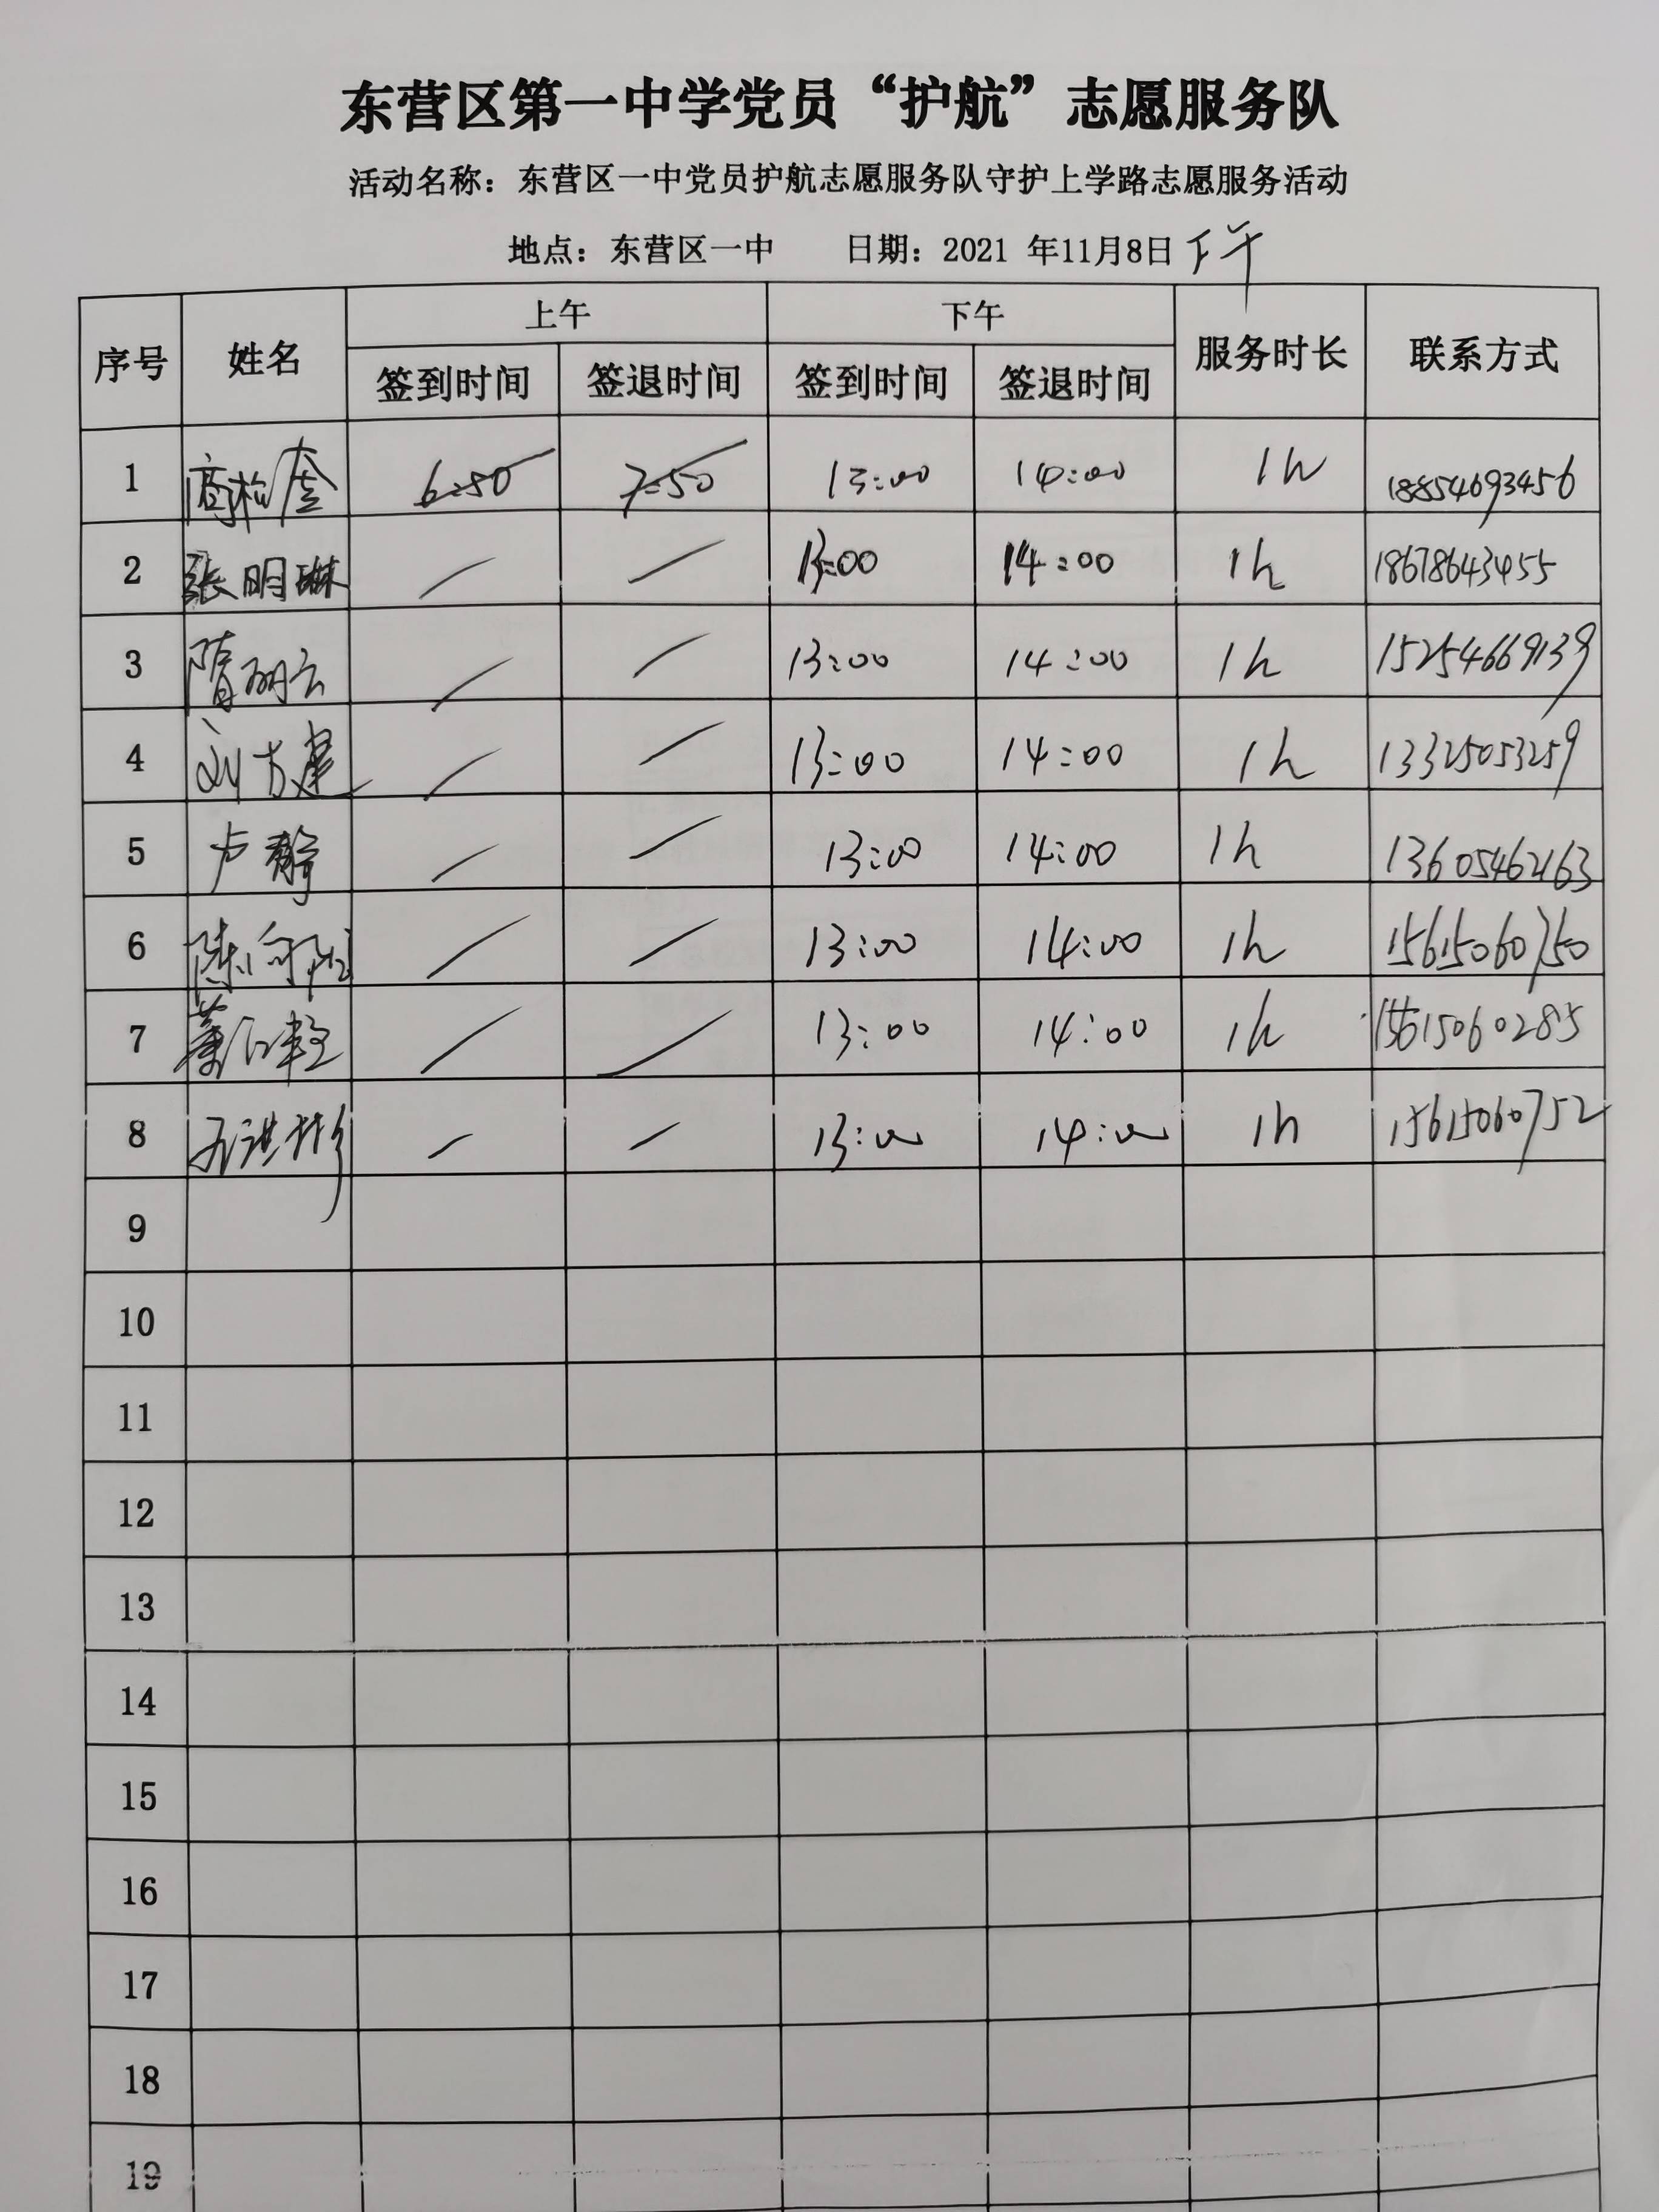 东营区第一中学党员“护航”志愿服务队
活动名称：东营区一中党员护航志愿服务队守护上学路志愿服务活动
地点：东营区一中 日期：2021 年11月8日 下午
序号 姓名 上午 下午 服务时长 联系方式
签到时间 签退时间 签到时间 签退时间
1 6:50 7:50 13:00 14:00 1h 18854693456
2 张明琳 / / 13:00 14:00 1h 18678643455
3 隋丽云 / / 13:00 14:00 1h 15254669139
4 刘方建 / / 13:00 14:00 1h 13325053259
5 卢静 / / 13:00 14:00 1h 13605462163
6 陈向阳 / / 13:00 14:00 1h 15615060750
7 / / 13:00 14:00 1h 15615060285
8 / / 13:00 14:00 1h 15615060752
9
10
11
12
13
14
15
16
17
18
19